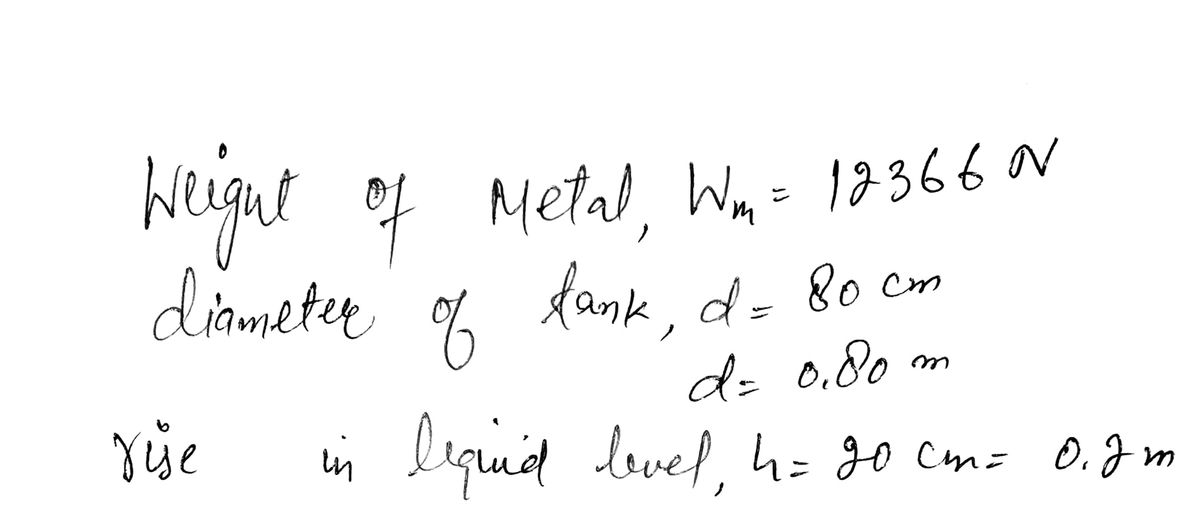 Weignt of Metal, Wm = 12366 N
diameter of tank, d = 80 cm
d = 0.80 m
rise in liquid level, h = 20 cm = 0.2 m